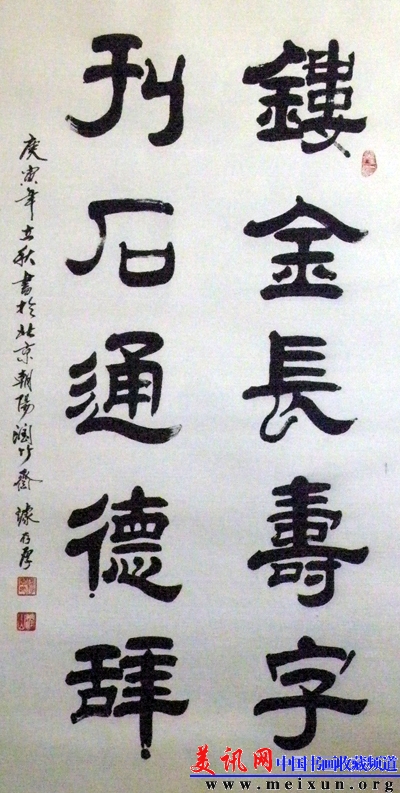 鏤金長壽字
刊石通德辞
庚寅年立秋書於北京朝陽潤竹齋
美讯网
中国书画收藏频道
www.meixun.org